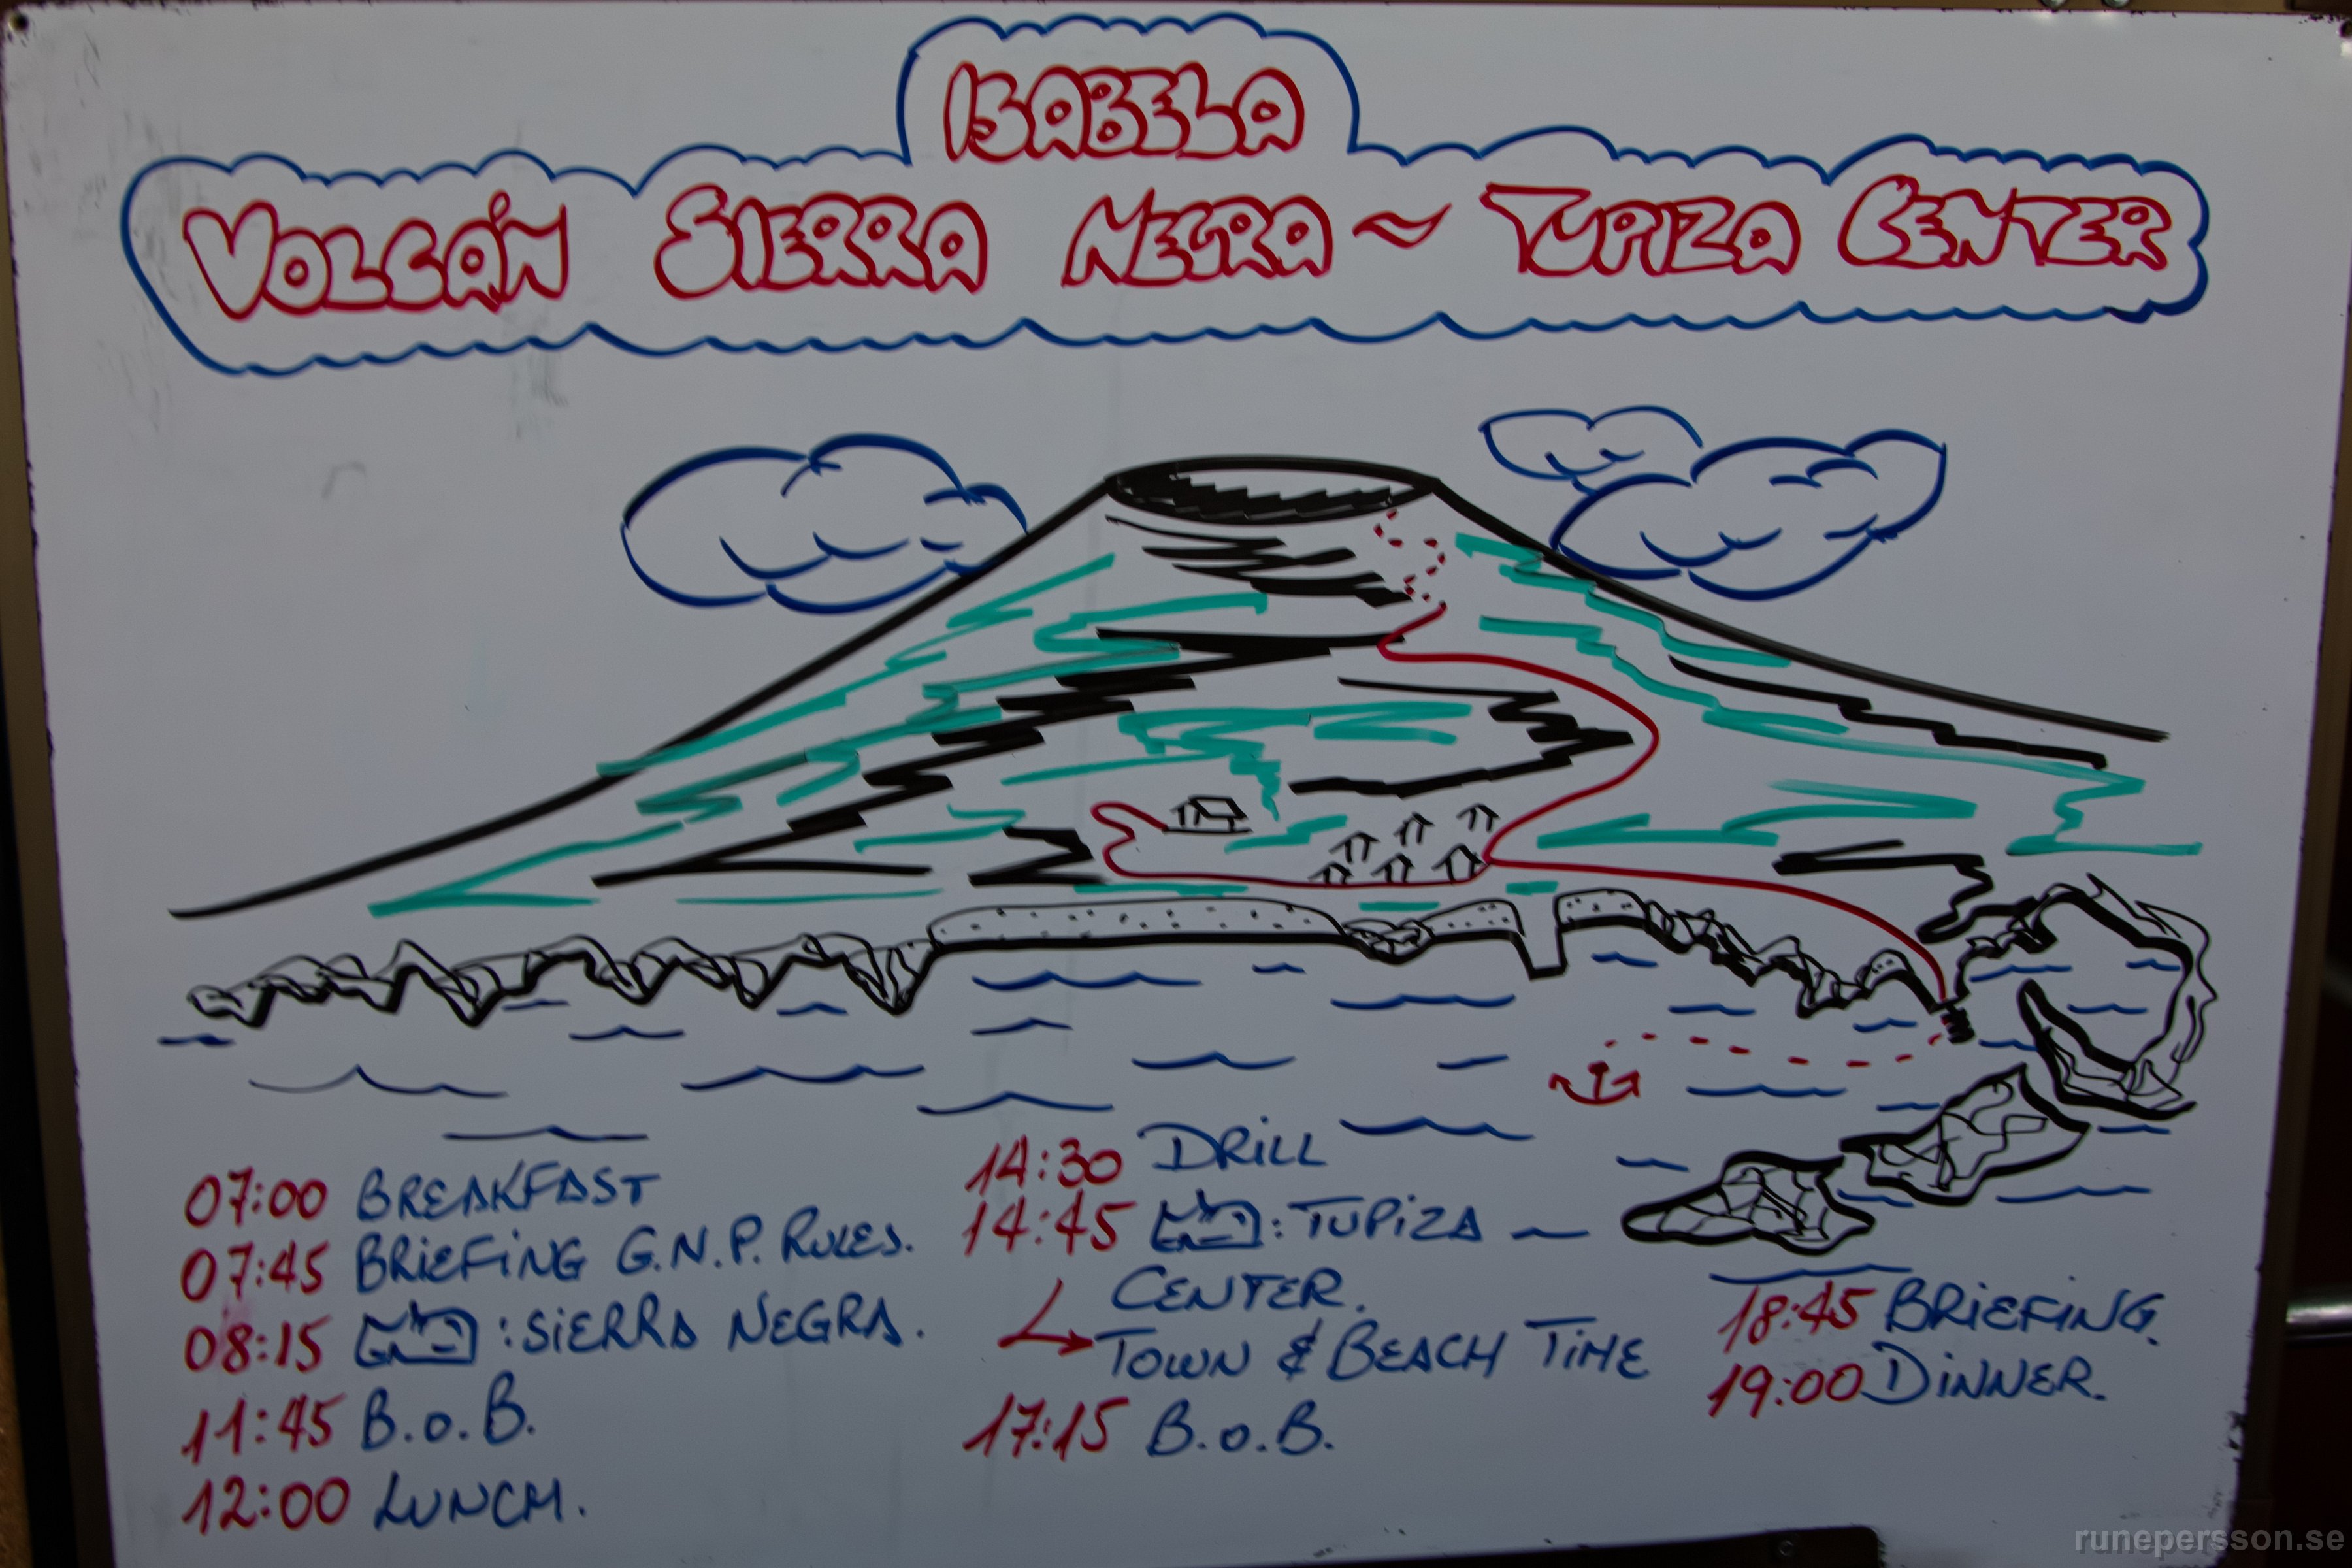 ISABELA
VOLCÁN SIERRA NEGRA ~ TUPIZA CENTER
07:00 BREAKFAST
07:45 BRIEFING G.N.P. RULES.
08:15 : SIERRA NEGRA.
11:45 B.o.B.
12:00 LUNCH.
14:30 DRILL
14:45 : TUPIZA ~
CENTER.
TOWN & BEACH TIME
17:15 B.o.B.
18:45 BRIEFING.
19:00 DINNER.
runepersson.se